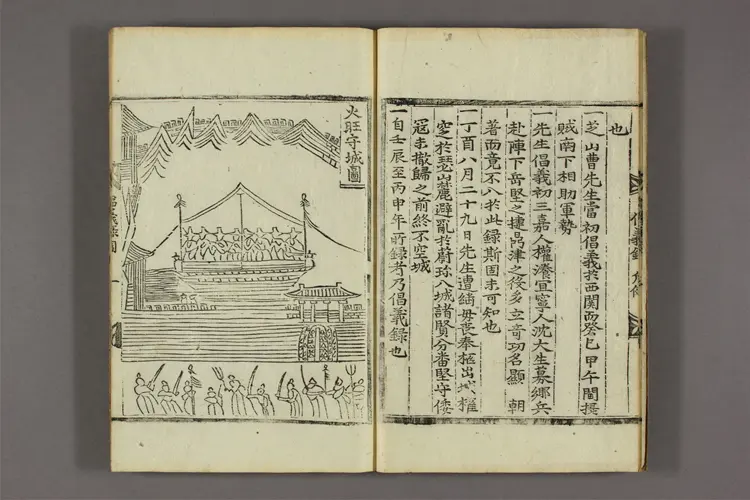 也
一芝山曹先生當初倡義於西関而癸巳甲午間
賊南下相助軍勢
一先生倡義初三嘉人權濟宜寧人沈大生募鄕兵
赴陣下岳堅之捷鼎津之役多立奇功名顯 朝
著而竟不入於此録斯固未可知也
一丁酉八月二十九日先生遭繼毋丧奉柩出城權
窆於瑟山麓避亂於蔚珎八城諸賢分番堅守倭
冦未撤歸之前終不空城
一自壬辰至丙申年所録者乃倡義録也
火旺守城圖